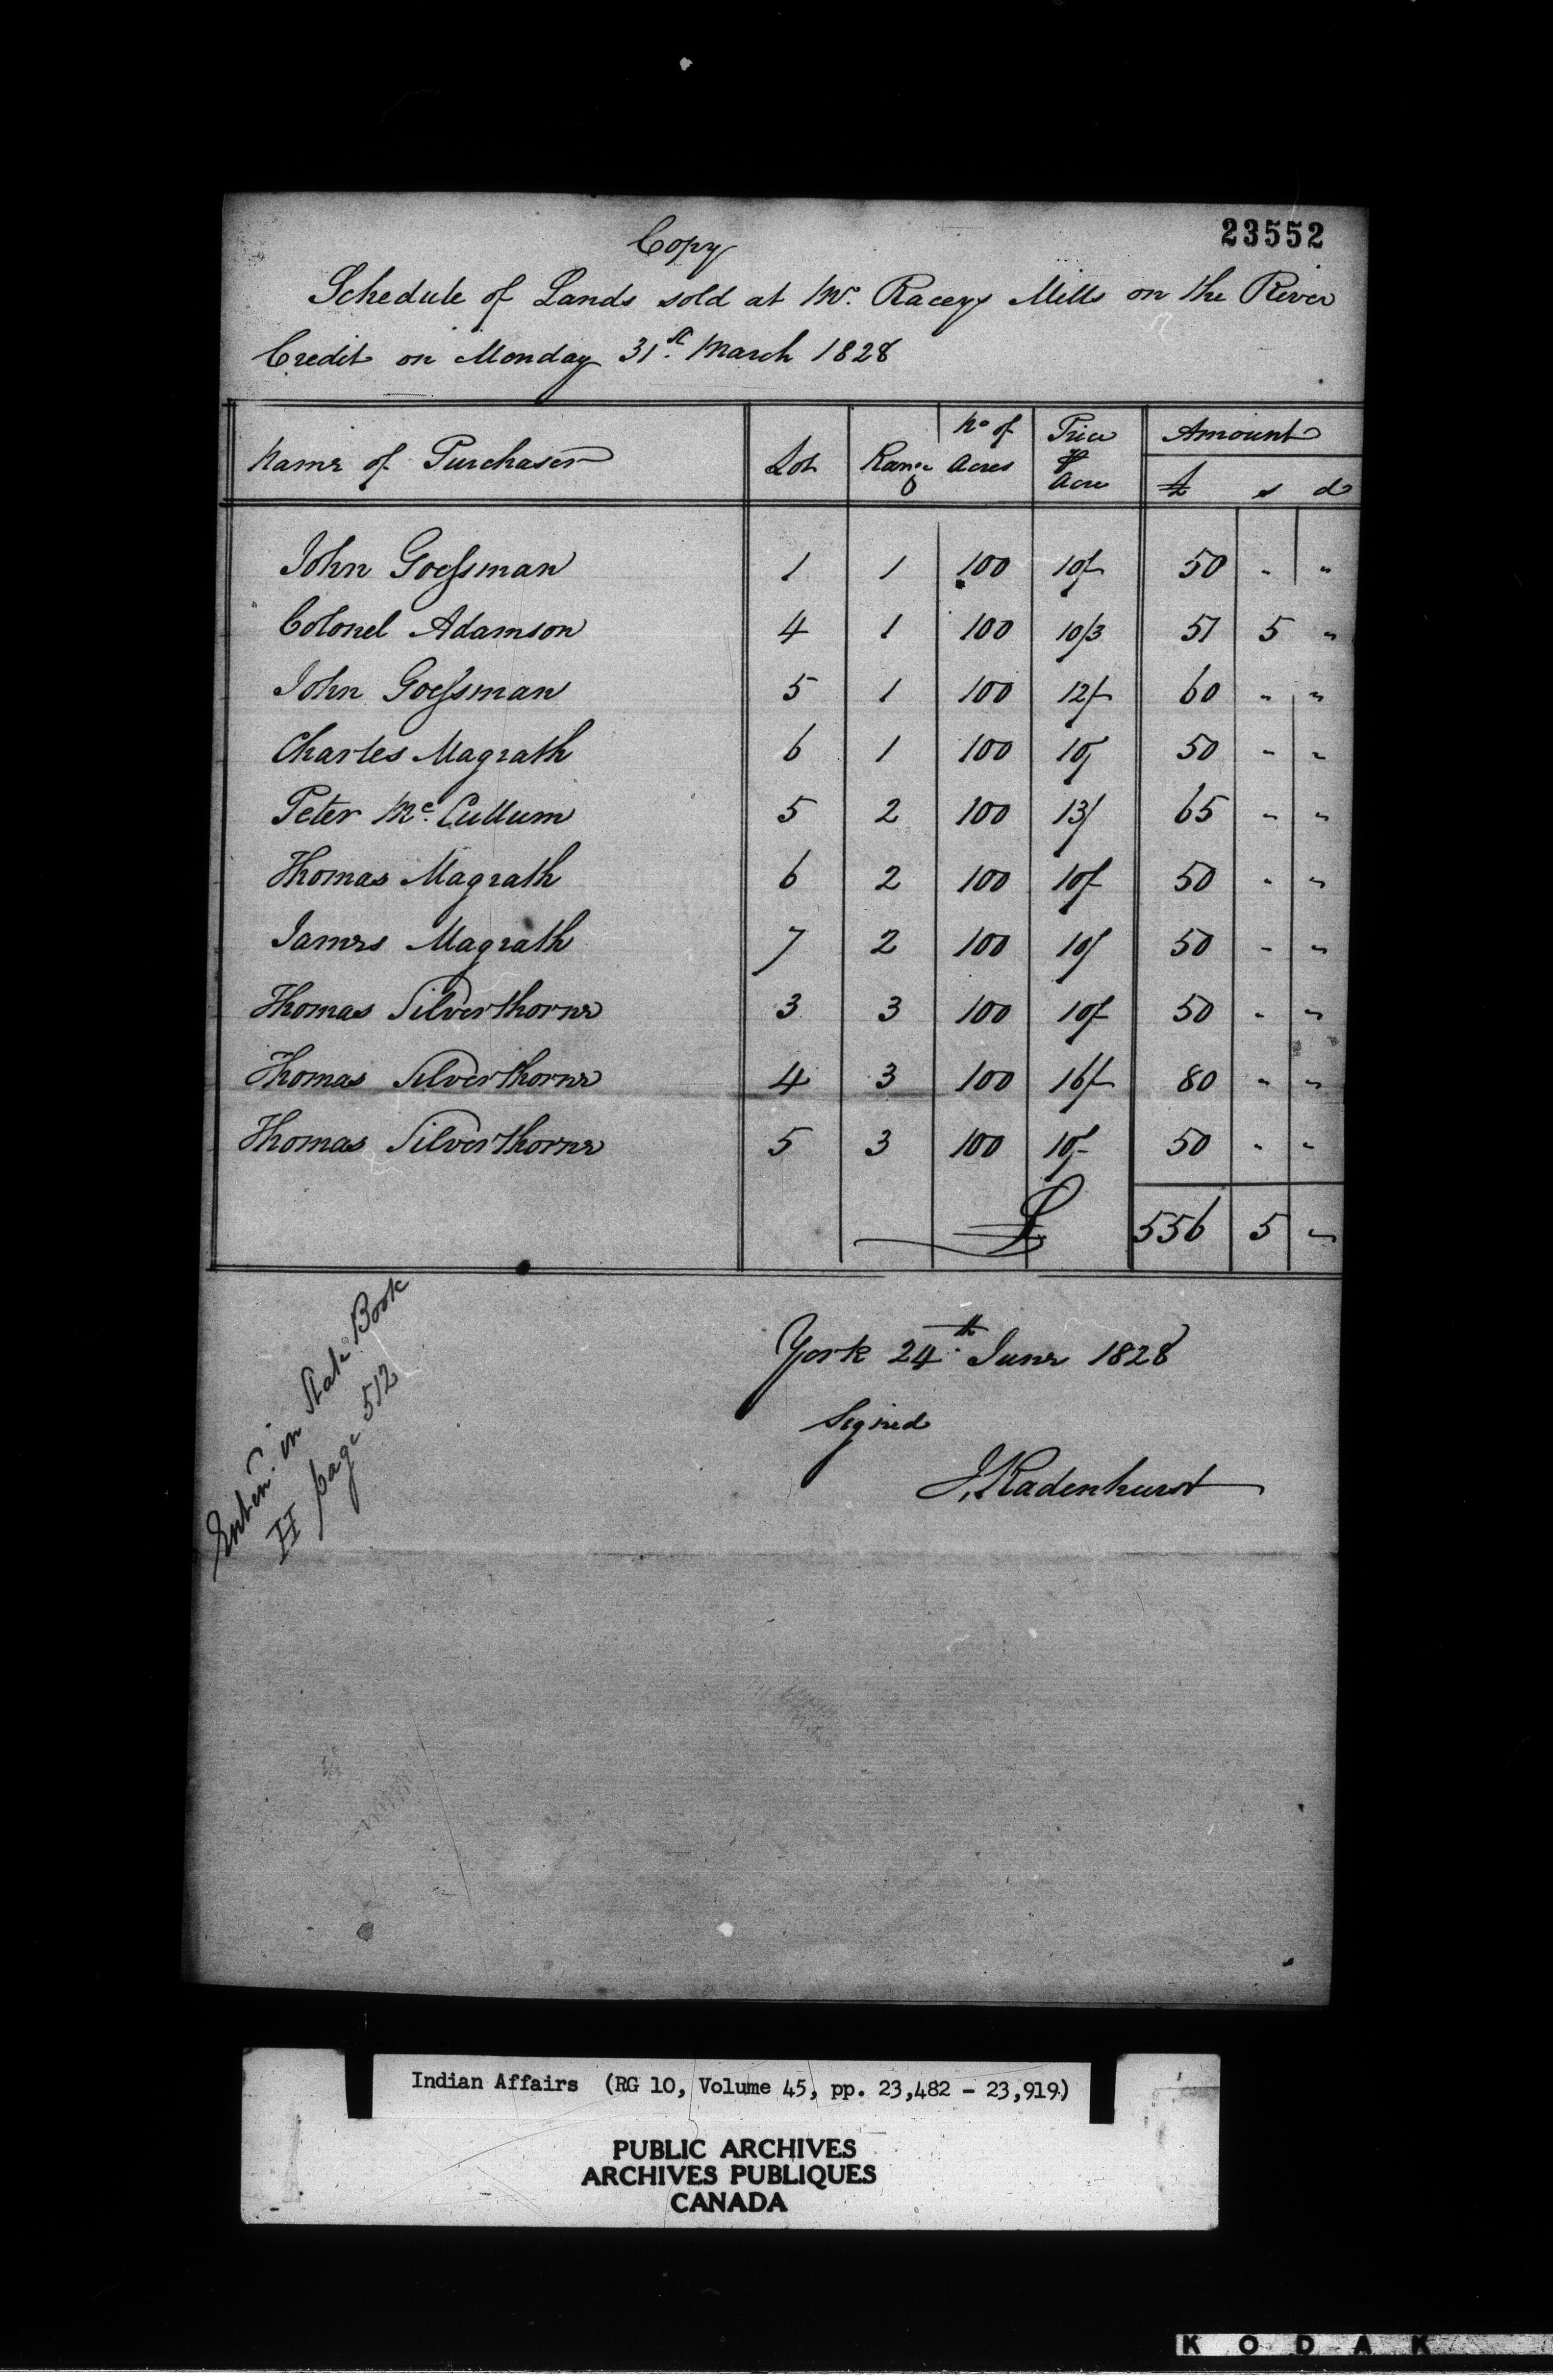 23552
Copy
Schedule of Lands sold at Mr. Raceys Mills on the River
Credit on Monday 31st. March 1828
Name of Purchaser Lot Range No of Acres Price ⅌ Acre Amount £ s d
John Goessman 1 1 100 10/- 50 " "
Colonel Adamson 4 1 100 10/3 51 5 "
John Goessman 5 1 100 12/- 60 " "
Charles Magrath 6 1 100 10/ 50 " "
Peter Mc. Cullum 5 2 100 13/ 65 " "
Thomas Magrath 6 2 100 10/- 50 " "
James Magrath 7 2 100 10/ 50 " "
Thomas Silverthorne 3 3 100 10/- 50 " "
Thomas Silverthorne 4 3 100 16/- 80 " "
Thomas Silverthorne 5 3 100 10/- 50 " "
£ 556 5 "
York 24th. June 1828
Signed
J. Radenhurst
in State Book
H page 512
Indian Affairs (RG 10, Volume 45, pp. 23,482 - 23,919)
PUBLIC ARCHIVES
ARCHIVES PUBLIQUES
CANADA
KODAK